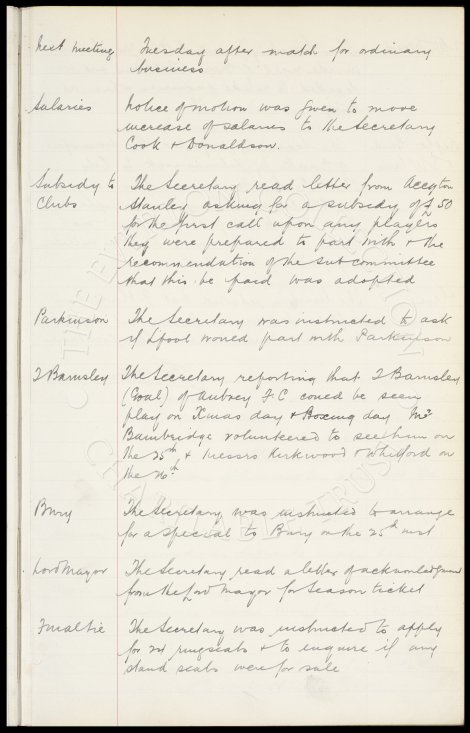 Next meeting Tuesday after match for ordinary
business
Salaries Notice of motion was given to move
increase of salaries to the Secretary
Cook & Donaldson.
Subsidy to The Secretary read letter from Accyton
Clubs Stanley asking for a subsidy of £50
for the first call upon any players
they were prepared to part with & the
recommendation of the sub committee
that this be paid was adopted
Parkinson The Secretary was instructed to ask
if L'pool would part with Parkinson
J Barnsley The Secretary reporting that J Barnsley
(Goal) of Aubrey F.C could be seen
play on Xmas day & Boxing day Mr
Bainbridge volunteered to see him on
the 25th & Messrs Kirkwood & Whitford on
the 26th
Bury The Secretary was instructed to arrange
for a special to Bury on the 25th inst
Lord Mayor The Secretary read a letter of acknowledgment
from the Lord Mayor for Season ticket
The Secretary was instructed to apply
for 24 ring seats & to enquire if any
stand seats were for sale